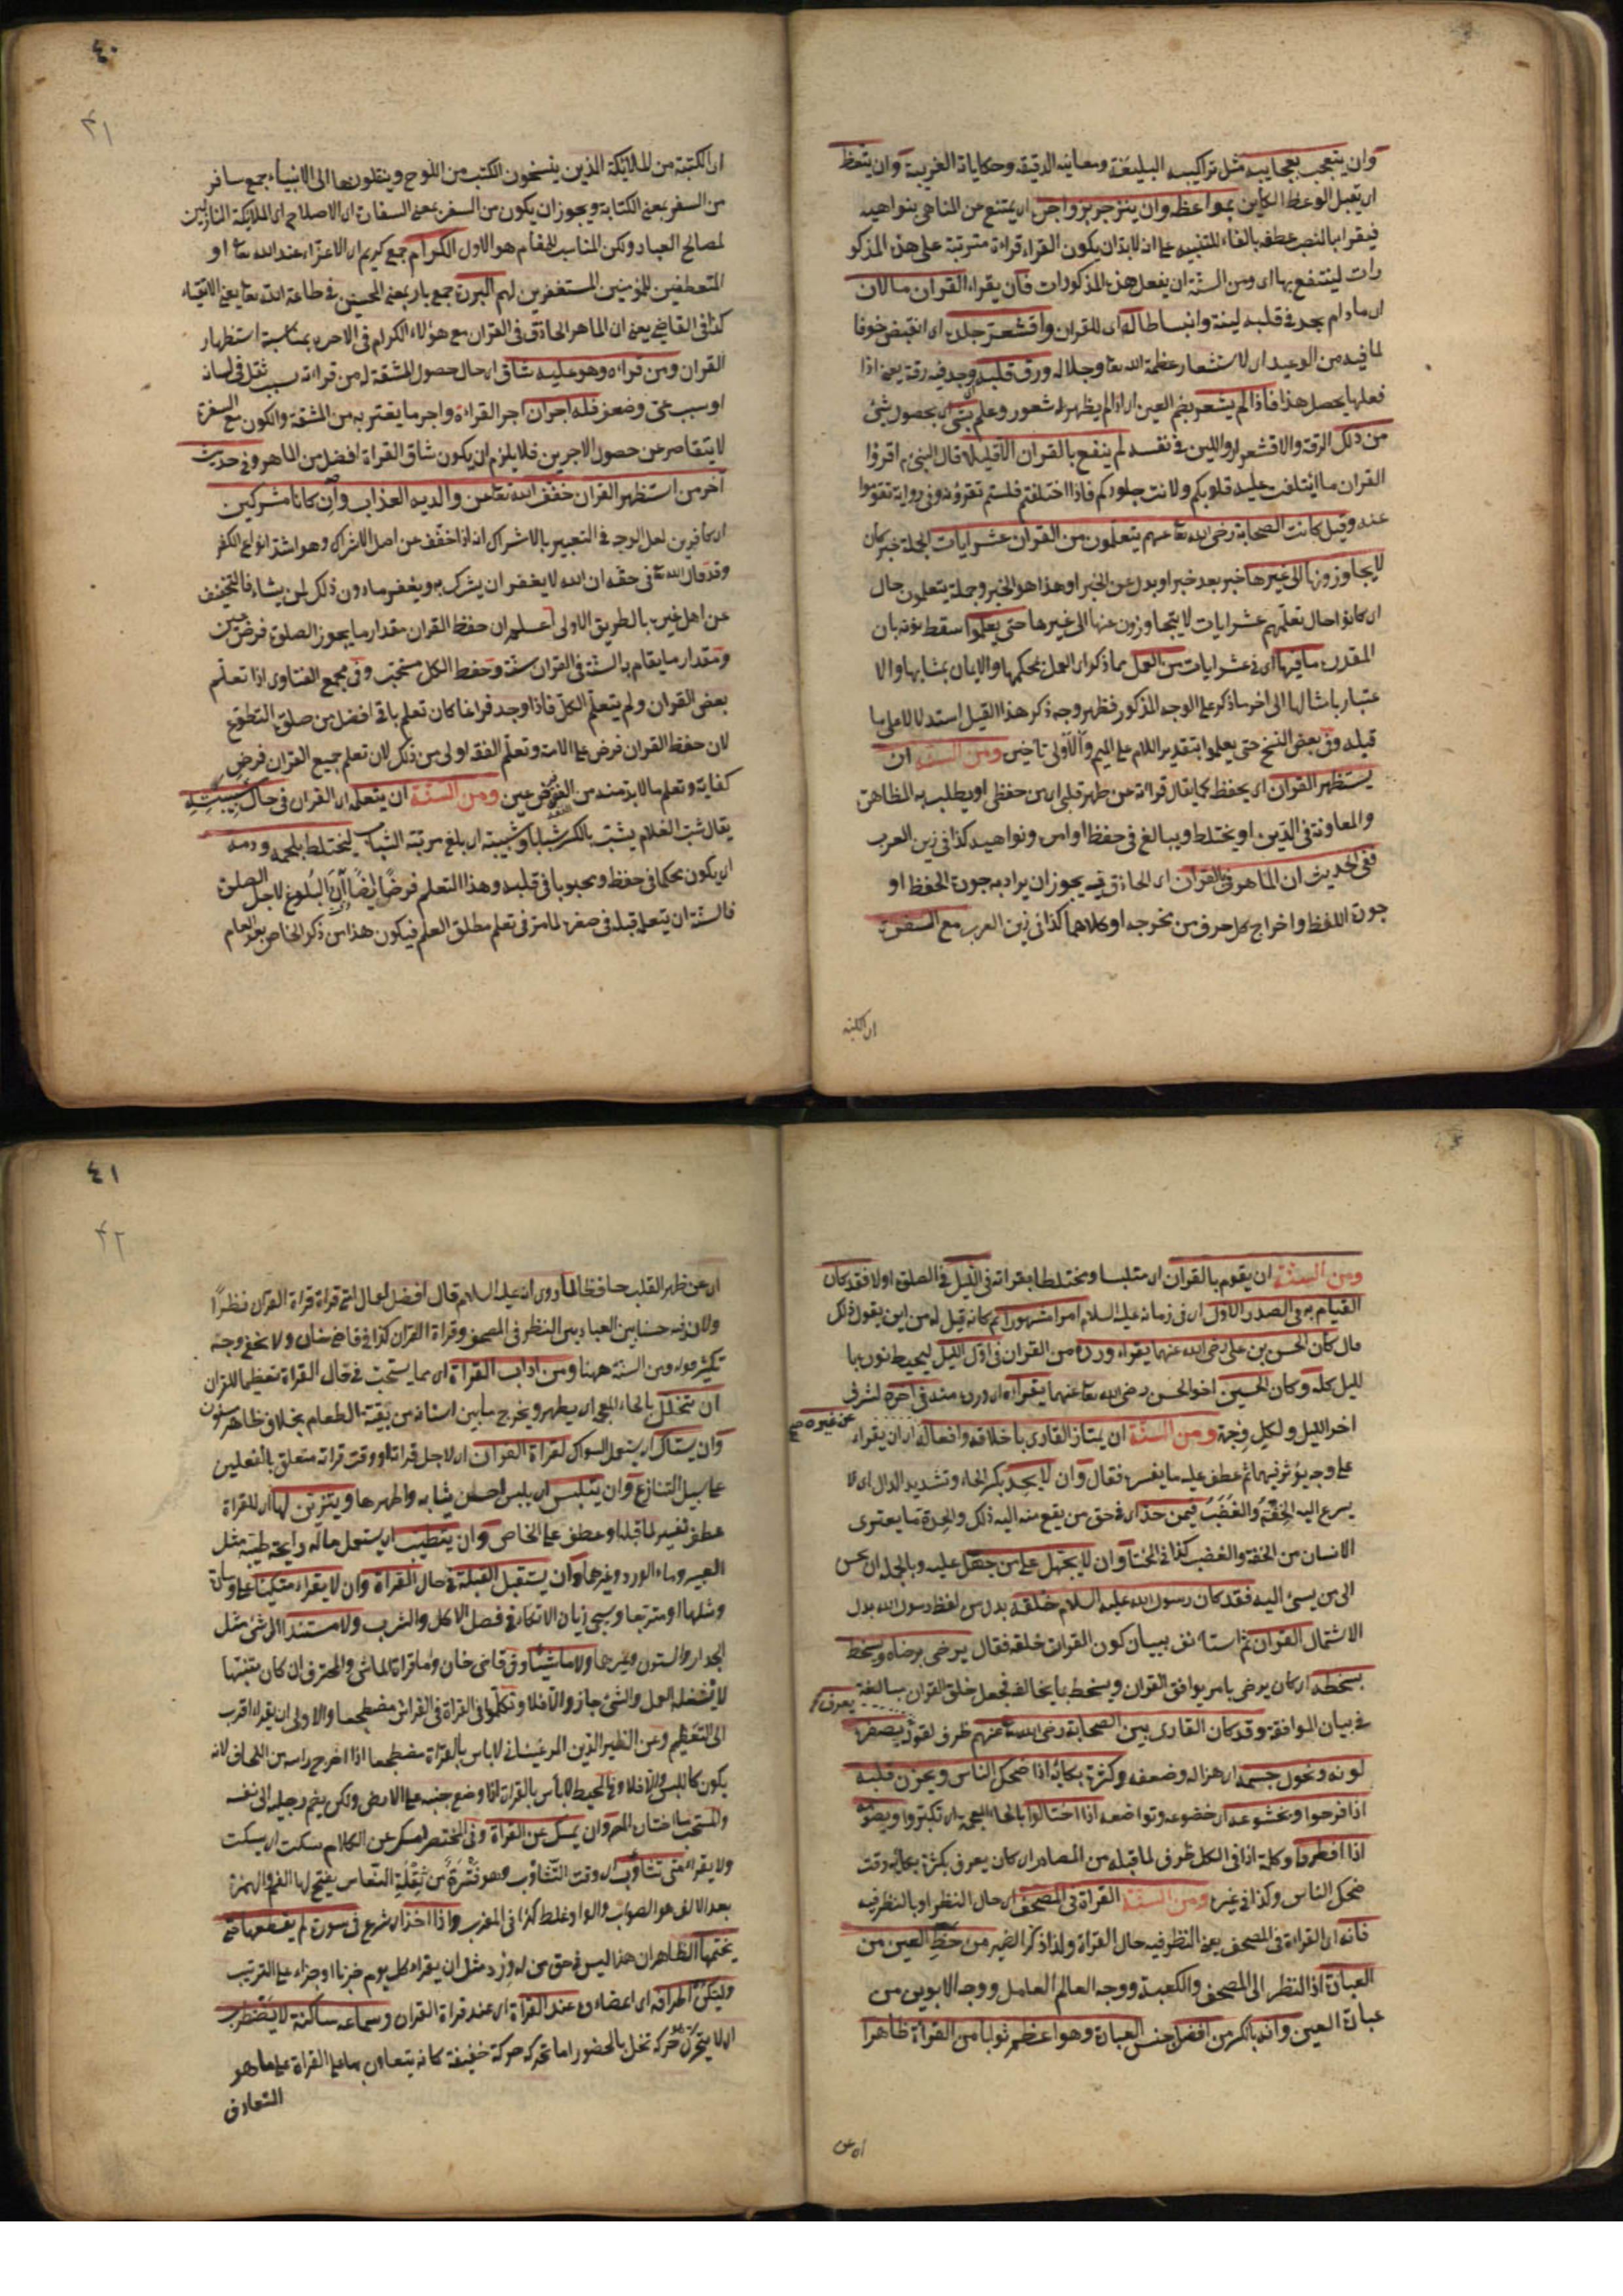 وان يتعجب بعجايبه مثل تراكيبه البليغة ومعاينه الدقيقة وحكاياته الغريبة وان يتعظ
اى يقبل الوعظ الكاين بمواعظه وان ينزجر بزواجره اى يمتنع عن المناهى بنواهيه
فيقرا بالنصب عطفه بالفاء للتنبيه على انه لابد ان يكون القراءة قراءة مترتبة على هذه المذكو
رات لينتفع بها اى ومن السنة ان يفعل هذه المذكورات فان يقراء القران ما لان
اى مادام يجد فى قلبه لينة وانبساطا له اى للقران واقشعر جلده اى انقبض خوفا
لما فيه من الوعيد اى لاستشعار عظمة الله تعا وجلاله ورق قلبه وجد فيه رقة يعنى اذا
فعلها يحصل هذا فاذا لم يشعر بضم العين اى اذا لم يظهر له شعور وعلم بشئ اى بحصول شئ
من ذلك الرقة والاقشعرار واللين فى نفسه لم ينفع بالقران الا قليلا قال النبى م اقرؤا
القران ما ائتلفت عليه قلوبكم ولانت جلودكم فاذا اختلفتم فلستم تقرؤنه وفى رواية تقوموا
عنه وقيل كانت الصحابة رضى الله تعا عنهم يتعلمون من القران عشر ايات الجملة خبر كان
لا يجاوزونها الى غيرها خبر بعد خبر او بدل عن الخبر او هذا هو الخبر وجملة يتعلمون حال
اى كانوا حال تعلمهم عشر ايات لا يتجاوزون عنها الى غيرها حتى يعلموا سقط نونه بان
المقدرة ما فيها اى فى عشر ايات من العمل بما ذكر اى العمل بمحكمها والايمان بمتشابهها والا
عتبار بامثالها الى اخر ما ذكر على الوجه المذكور فظهر وجه ذكر هذا القيل استدلالا على ما
قبله وفى بعض النسخ حتى يعملوا بتقديم اللام على الميم والاولى تاخيره ومن السنة ان
يستظهر القران اى يحفظ كما يقال قراته عن ظهر قلبى اى من حفظى او يطلب به المظاهرة
والمعاونة فى الدين او يختلط ويبالغ فى حفظ اوامره ونواهيه كذا فى زين العرب
ففى الحديث ان الماهر فى القران اى الحاذق فيه يجوز ان يراد به جودة الحفظ او
جودة اللفظ واخراج كل حرف من مخرجه او كلاهما كذا فى زين العرب مع السفرة
اى الكتبة
٤٠
٤١
اى الكتبة من الملائكة الذين ينسخون الكتب من اللوح وينقلونها الى الانبياء جمع سافر
من السفر بمعنى الكتابة ويجوز ان يكون من السفر بمعنى السفارة اى الاصلاح اى الملايكة النازلين
لمصالح العباد ولكن المناسب للمقام هو الاول الكرام جمع كريم اى الاعزاء عند الله تعا او
المتعطفين للمؤمنين المستغفرين لهم البررة جمع بار بمعنى المحسن فى طاعة الله تعا يعنى الاتقياء
كذا فى القاضى يعنى ان الماهر الحاذق فى القران مع هؤلاء الكرام فى الاجر بمناسبة استظهار
القران ومن قراه وهو عليه شاق اى حال حصول المشقة له من قراته بسبب ثقل فى لسانه
او سبب عى وضعف فله اجران اجر القراءة واجر ما يعتريه من المشقة والكون مع السفرة
لا يتقاصر عن حصول الاجرين فلا يلزم ان يكون شاق القراة افضل من الماهر وفى حديث
آخر من استظهر القران خفف الله تعا عن والديه العذاب وان كانا مشركين
اى كافرين لعل الوجه فى التعبير بالاشراك انه اذا خفف عن اهل الاشراك وهو اشد انواع الكفر
وقد قال الله تعا فى حقه ان الله لا يغفر ان يشرك به ويغفر ما دون ذلك لمن يشاء فالتخفيف
عن اهل غيره بالطريق الاولى اعلم ان حفظ القران مقدار ما يجوز الصلوة فرض عين
ومقدار ما يقام به السنة فى القران سنة وحفظ الكل مستحب وفى مجمع الفتاوى اذا تعلم
بعض القران ولم يتعلم الكل فاذا وجد فراغا كان تعلم باقى افضل من صلوة التطوع
لان حفظ القران فرض على الامة وتعلم الفقه اولى من ذلك لان تعلم جميع القران فرض
كفاية وتعلم ما لابد منه من الفقه فرض عين ومن السنة ان يتعلم اى القران فى حال شبيبته
يقال شب الغلام يشب بالكسر شبابا وشبيبة اى بلغ مرتبة الشباب ليختلط بلحمه ودمه
اى يكون محكما فى حفظه ومحبوبا فى قلبه وهذا التعلم فرض ايضا ان البلوغ لاجل الصلوة
فالسنة ان يتعلم قبله فى صغره لما مر فى تعلم مطلق العلم فيكون هذا من ذكر الخاص بعد العام
ومن السنة ان يقوم بالقران اى متلبسا ومختلطا بقراته فى الليل فى الصلوة اولا فقد كان
القيام به فى الصدر الاول اى فى زمانه عليه السلام امرا مشهورا ثم كانه قيل له من اين يقول ذلك
قال كان الحسن بن على رضى الله عنهما يقراء ورده من القران فى اول الليل ليحيط نوره با
لليل كله وكان الحسين اخو الحسن رضى الله تعا عنهما يقراه اى ورده منه فى آخره لشرف
اخر الليل ولكل وجهة ومن السنة ان يمتاز القارى باخلاقه وافعاله اى ان يقراء
عن غيره صح
على وجه يؤثر فيهما ثم عطف عليه ما يفسره فقال وان لا يحد بكسر الحاء وتشديد الدال اى لا
يسرع اليه الخفة والغضب فيمن حد اى فى حق من يقع منه اليه ذلك والحدة ما يعترى
الانسان من الخفة والغضب كذا فى المختار وان لا يجهل على من جهل عليه وبالجملة ان يحسن
الى من يسئ اليه فقد كان رسول الله عليه السلام خلقه بدل من لفظ رسول الله بدل
الاشتمال القران ثم استانف ببيان كون القران خلقه فقال يرضى برضاه ويسخط
بسخطه اى كان يرضى بامر يوافق القران ويسخط بما يخالفه فجعل خلق القران مبالغة
فى بيان الموافقة وقد كان القارى بين الصحابة رضى الله تعا عنهم ظرف لقوله بصفرة
يعرف
لونه ونحول جسمه اى هزاله وضعفه وكثرة بكائه اذا ضحك الناس ويحزن قلبه
اذا فرحوا وبخشوعه اى خضوعه وتواضعه اذا اختالوا بالخاء المعجمة اى تكبروا وبصومه
اذا افطروا وكلمة اذا فى الكل ظرف لما قبله من المصادر اى كان يعرف بكثرة بكائه وقت
ضحك الناس وكذا فى غيره ومن السنة القراة فى المصحف اى حال النظر او بالنظر فيه
فانه اى القراءة فى المصحف يعنى النظر فيه حال القراة ولذا ذكر الضمير من حظ العين من
العبادة اذ النظر الى المصحف والكعبة ووجه العالم العامل ووجه الابوين من
عبادة العين وانه بالكسر من افضل جنس العبادة وهو اعظم ثوابا من القراة ظاهرا
اى عن
٤١
٤٢
اى عن ظهر القلب حافظا لما روى انه عليه السلام قال افضل اعمال امتى قراة القران نظرا
ولان فيه حسنا بين العبادتين النظر فى المصحف وقراة القران كذا فى قاضى خان ولا يخفى وجه
تكثير قوله ومن السنة ههنا ومن اداب القراة اى مما يستحب فى حال القراة تعظيما للقران
ان يتخلل بالخاء المعجمة اى يطهر ويخرج ما بين اسنانه من بقية الطعام بخلاف ظاهر
وان يستاك اى يستعمل السواك لقراة القران اى لاجل قراته او وقت قراته متعلق بالفعلين
على سبيل التنازع وان يتلبس اى يلبس احسن ثيابه واطهرها ويتزين لها اى للقراة
عطف تفسير لما قبله او عطف على الخاص وان يتطيب اى يستعمل ماله رايحة طيبة مثل
العبير وماء الورد وغيرهما وان يستقبل القبلة فى حال القراة وان لا يقراء متكيا على وسادة
ومثلها او متربعا وسيجئ بيان الاتكاء فى فصل الاكل والشرب ولا مستندا الى شئ مثل
الجدار والستون وغيرهما ولا ماشيا وفى قاضى خان واما قراة الماشى والمحترف ان كان منتبها
لا يشغله العمل والمشى جاز والا فلا وتكلموا فى القراة فى الفراش مضطجعا والاولى ان يقراء اقرب
الى التعظيم وعن الظهير الدين المرغينانى لا باس بالقراة مضطجعا اذا اخرج راسه من اللحاف لانه
يكون كاللبس والا فلا وفى المحيط لا باس بالقراة اذا وضع جنبه على الارض ولكن يضم رجليه الى نفسه
وان يمسك عن القراة وفى المختصر امسك عن الكلام سكت اى يسكت
ولا يقرا متى تثاوب اى وقت التثاؤب وهو فترة من ثقلة النعاس يفتح لها الفم والهمزة
بعد الالف هو الصواب والواو غلط كذا فى المغرب واذا اخذ اى شرع فى سورة لم يقطعها حتى
يختمها الظاهر ان هذا ليس فى حق من له ورد مثل ان يقراء كل يوم حزبا او جزاء على الترتيب
وليكن اطرافه اى اعضاءه عند القراة اى عند قراة القران وسماعه ساكنة لا يضطرب
اى لا يتحرك حركة تخل بالحضور اما تحركه حركة خفيفة كانه يتعاون بها على القراة على ما هو
المتعارف